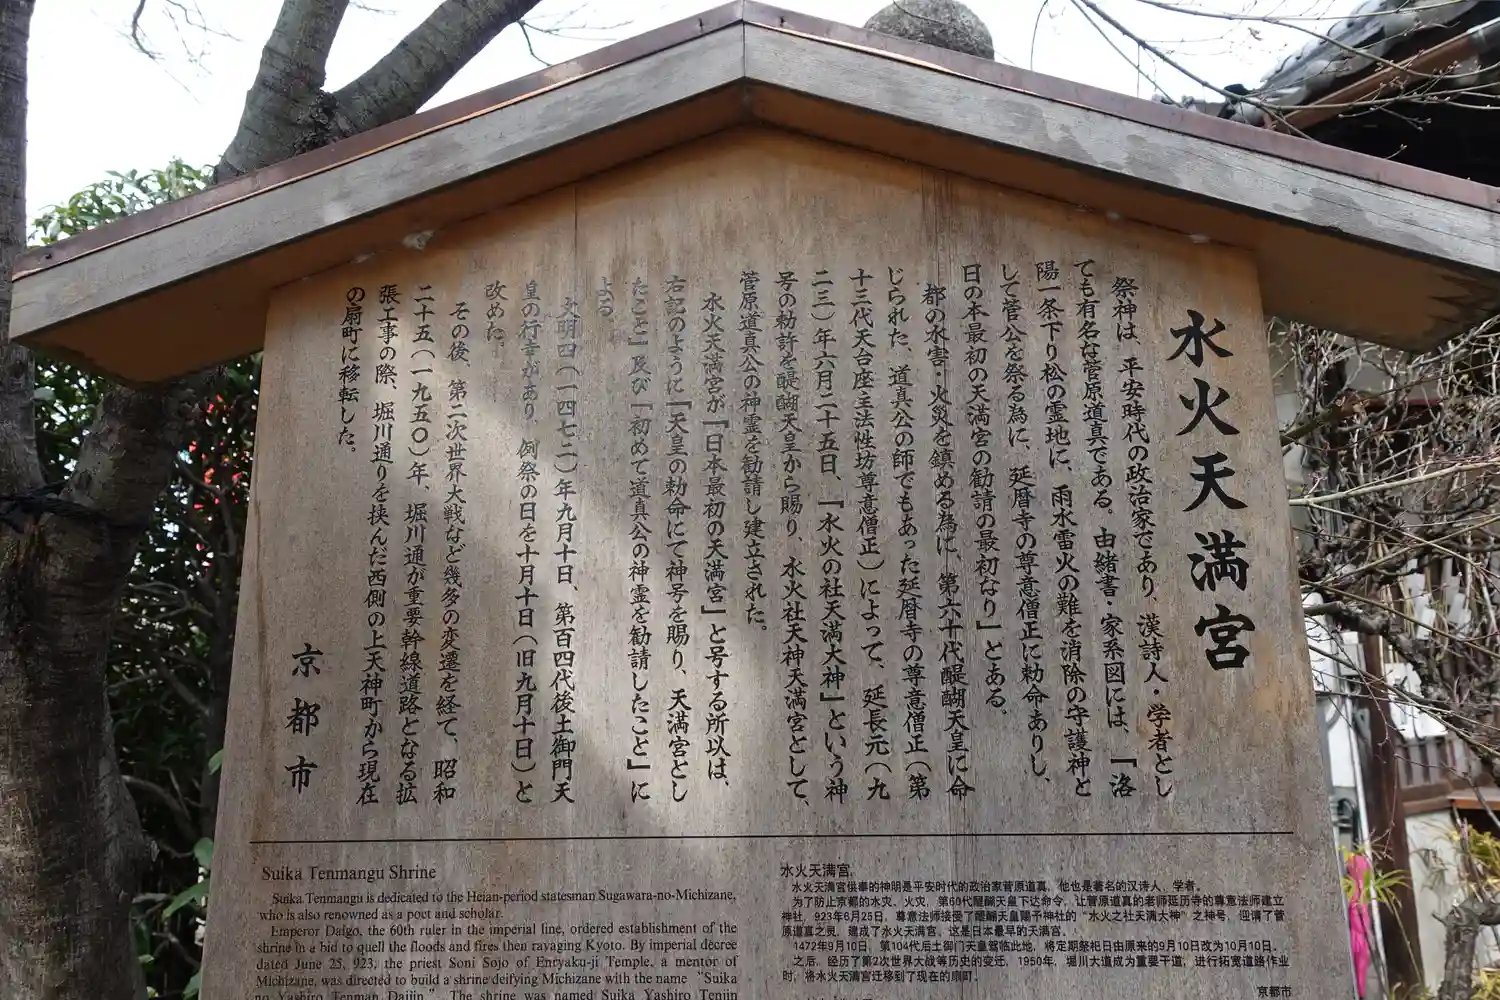 水火天満宮
祭神は、平安時代の政治家であり、漢詩人・学者とし
ても有名な菅原道真である。由緒書・家系図には、「洛
陽一条下り松の霊地に、雨水雷火の難を消除の守護神と
して菅公を祭る為に、延暦寺の尊意僧正に勅命ありし、
日の本最初の天満宮の勧請の最初なり」とある。
都の水害・火災を鎮める為に、第六十代醍醐天皇に命
じられた、道真公の師でもあった延暦寺の尊意僧正(第
十三代天台座主法性坊尊意僧正)によって、延長元(九
二三)年六月二十五日、「水火の社天満大神」という神
号の勅許を醍醐天皇から賜り、水火社天神天満宮として、
菅原道真公の神霊を勧請し建立された。
水火天満宮が「日本最初の天満宮」と号する所以は、
右記のように「天皇の勅命にて神号を賜り、天満宮とし
たこと」及び「初めて道真公の神霊を勧請したこと」に
よる。
文明四(一四七二)年九月十日、第百四代後土御門天
皇の行幸があり、例祭の日を十月十日(旧九月十日)と
改めた。
その後、第二次世界大戦など幾多の変遷を経て、昭和
二十五(一九五〇)年、堀川通が重要幹線道路となる拡
張工事の際、堀川通りを挟んだ西側の上天神町から現在
の扇町に移転した。
京都市
Suika Tenmangu Shrine
Suika Tenmangu is dedicated to the Heian-period statesman Sugawara-no-Michizane,
who is also renowned as a poet and scholar.
Emperor Daigo, the 60th ruler in the imperial line, ordered establishment of the
shrine in a bid to quell the floods and fires then ravaging Kyoto. By imperial decree
dated June 25, 923, the priest Soni Sojo of Enryaku-ji Temple, a mentor of
Michizane, was directed to build a shrine deifying Michizane with the name “Suika
no Yashiro Tenman Daijin.” The shrine was named Suika Yashiro Tenjin
水火天满宫
水火天满宫供奉的神明是平安时代的政治家菅原道真，他也是著名的汉诗人、学者。
为了防止京都的水灾、火灾，第60代醍醐天皇下达命令，让菅原道真的老师延历寺的尊意法师建立
神社，923年6月25日，尊意法师接受了醍醐天皇赐予神社的“水火之社天满大神”之神号，迎请了菅
原道真之灵，建成了水火天满宫。这是日本最早的天满宫。
1472年9月10日，第104代后土御门天皇驾临此地，将定期祭祀日由原来的9月10日改为10月10日。
之后，经历了第2次世界大战等历史的变迁，1950年，堀川大道成为重要干道，进行拓宽道路作业
时，将水火天满宫迁移到了现在的扇町。
京都市